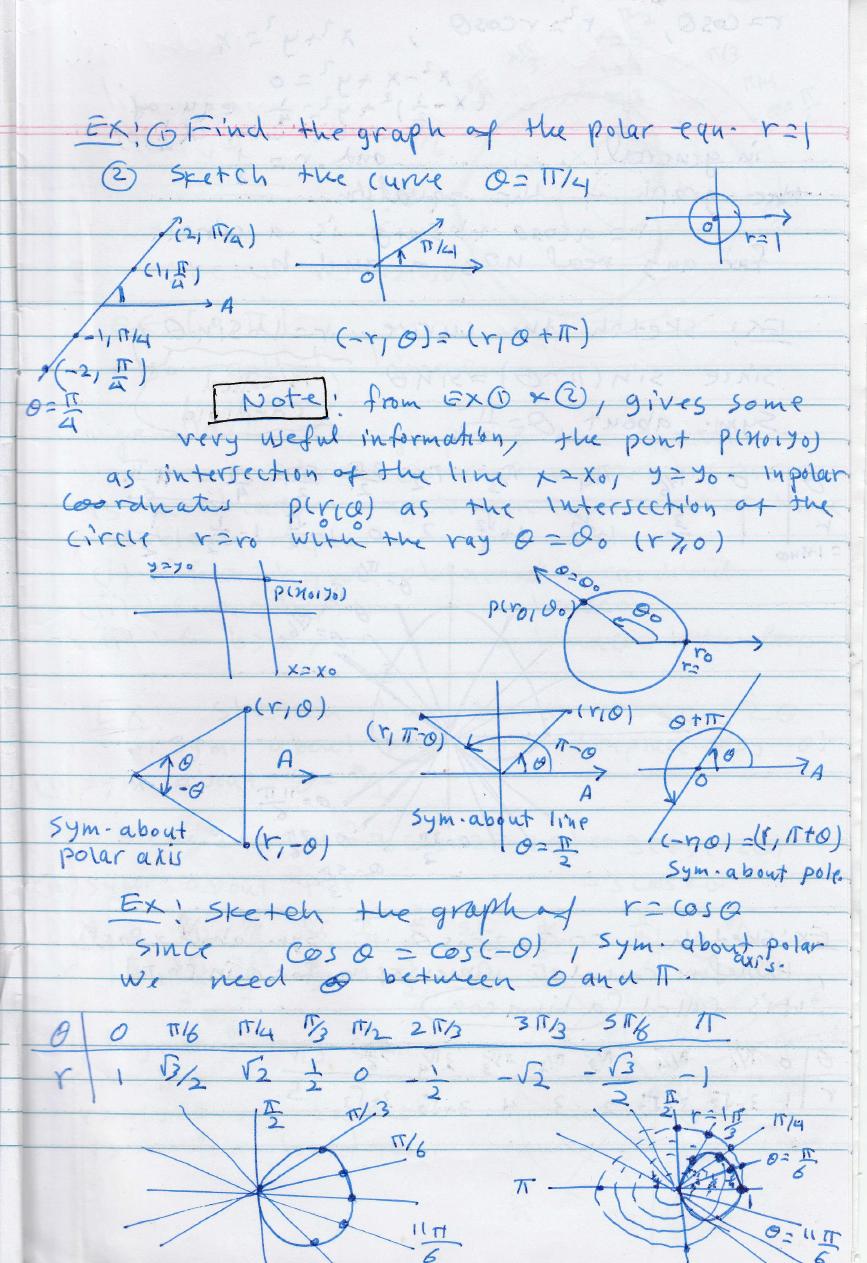 EX! ① Find the graph of the polar eqn. r=1
② Sketch the curve θ=π/4
(2, π/4)
(1, π/4)
A
-1, π/4
(-2, π/4)
θ=π/4
π/4
O
O
r=1
(-r, θ)=(r, θ+π)
Note! from EX① & ②, gives some
very useful information, the punt P(x₀,y₀)
as intersection of the line x=x₀, y=y₀. In polar
Coordnates P(r₀,θ₀) as the intersection of the
circle r=r₀ with the ray θ=θ₀ (r≥0)
y=y₀
P(x₀,y₀)
x=x₀
θ=θ₀
P(r₀,θ₀)
θ₀
r₀
r=
(r,θ)
θ
A
-θ
(r,-θ)
Sym. about
polar axis
(r,θ)
(r, π-θ)
π-θ
θ
A
Sym. about line
θ=π/2
θ+π
θ
O
A
(-r,θ)=(r, π+θ)
Sym. about pole
Ex! Sketch the graph of r=cosθ
Since cosθ = cos(-θ), Sym. about polar
axis.
We need θ between 0 and π.
θ 0 π/6 π/4 π/3 π/2 2π/3 3π/3 5π/6 π
r 1 √3/2 √2 1/2 0 -1/2 -√2 -√3/2 -1
π/2
π/3
π/6
11π/6
π/2
r=1
π/3
π/4
θ=π/6
π
1
θ=11π/6